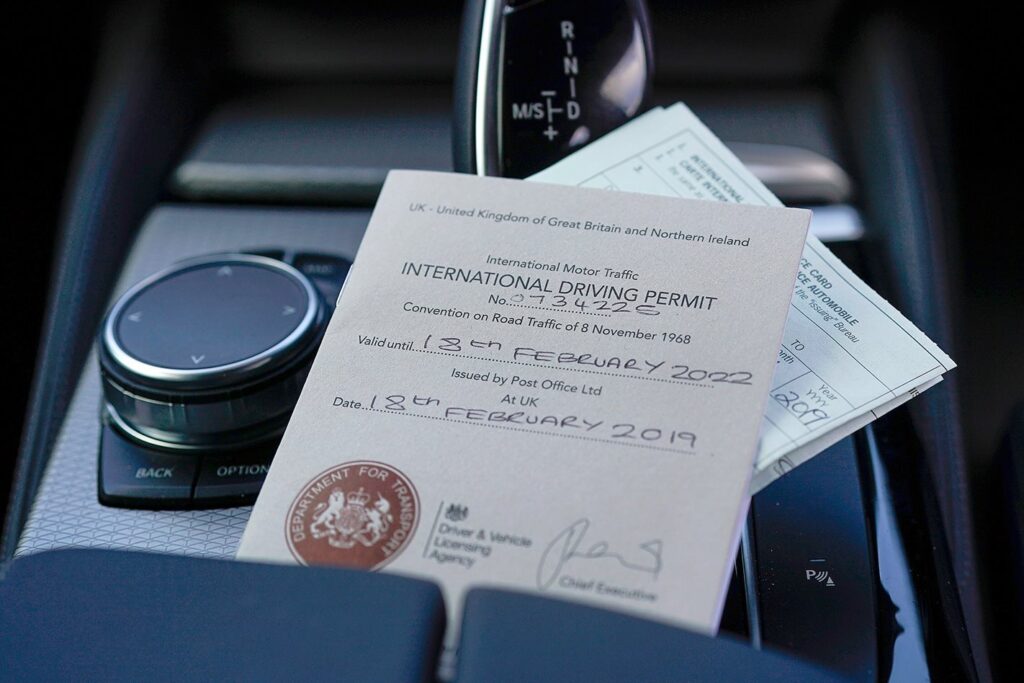 R
N
D
M/S
+
UK - United Kingdom of Great Britain and Northern Ireland
International Motor Traffic
INTERNATIONAL DRIVING PERMIT
No. 0734226
Convention on Road Traffic of 8 November 1968
Valid until 18th FEBRUARY 2022
Issued by Post Office Ltd
At UK
Date 18th FEBRUARY 2019
DEPARTMENT FOR TRANSPORT
Driver & Vehicle
Licensing
Agency
Chief Executive
INTERNATIONAL
CARTE INTER
3.
CE CARD
CE AUTOMOBILE
the "Issuing" Bureau
TO
nth
Year
YYYY
2019
BACK
OPTION
P